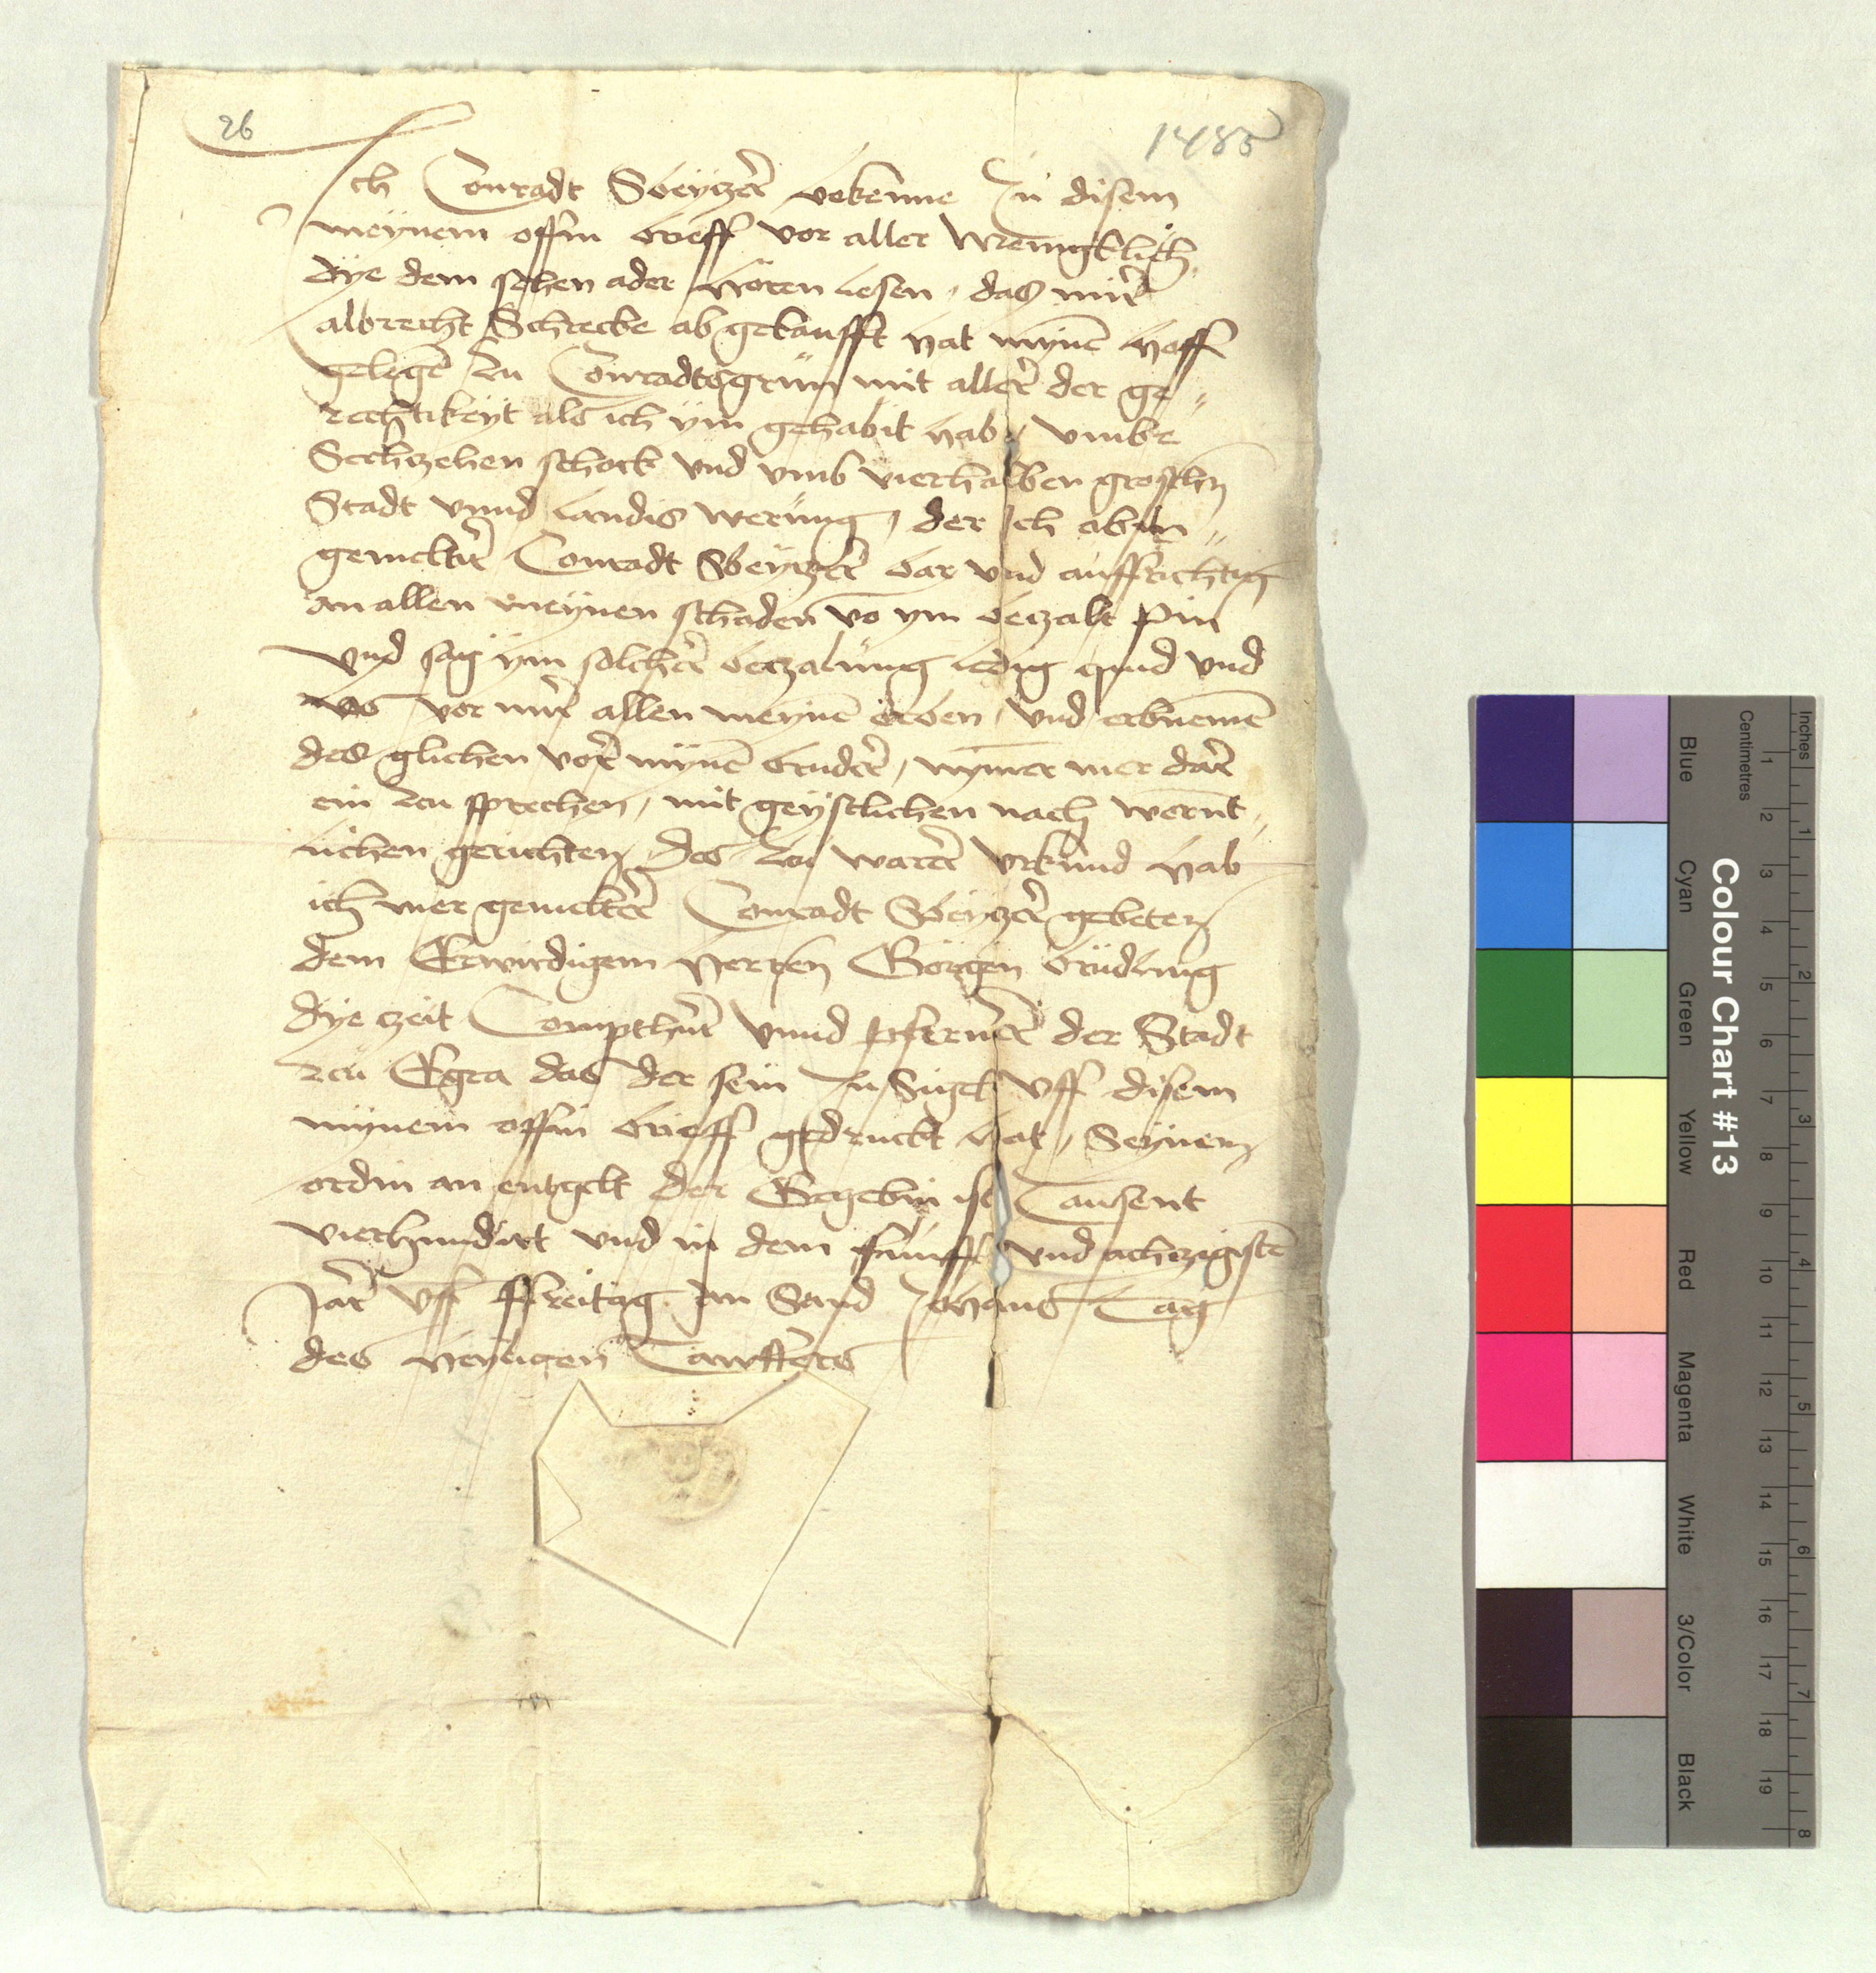 26
1485
Ich Conradt Sweytzer bekenne In disem
meynem offin brieff vor aller Menigklich
dye dem sehen ader horen lesen, das mir
albrecht Schrecke ab gekaufft hat mynē hoff
gelegē zcu Conradtsgrun mit aller der ge-
rechtikeyt als ich ym gehabit hab, vmbe
Sechzehen schock vnd vmb vierhalben groschn
Stadt vnnd landis werung, der Ich oben-
gemelter Conradt Sweytzer bar vnd auffrichtig
an allen meynen schaden vō ym beczalt pin
vnd sag ym solcher beczalung ledig quid vnd
los vor mir allen meynē erben, vnd erbnemē
des glichen vor mynē bruder, nymer mer dar
ein zcu sprechen, mit geystlichen nach wernt-
lichen gerichten, des zcu warer vrkund hab
ich mer gemelter Conradt Sweytzer gebeten
dem Erwirdigem herren Görgen
dye zeit Compthur vnnd pferner der Stadt
zcu Egra das der sein InSigel vff disem
mynem offin brieff gedruckt hat, Seynem
ordin an entgelt der Gegebin ist Tausent
vierhundirt vnd in dem funff vnd achczigistē
Jar vff ffreitag an Sand Johans Tag
des heyligen Tawffers
Colour Chart #13
Blue
Cyan
Green
Yellow
Red
Magenta
White
3/Color
Black
Centimetres
1 2 3 4 5 6 7 8 9 10 11 12 13 14 15 16 17 18 19
Inches
1 2 3 4 5 6 7 8